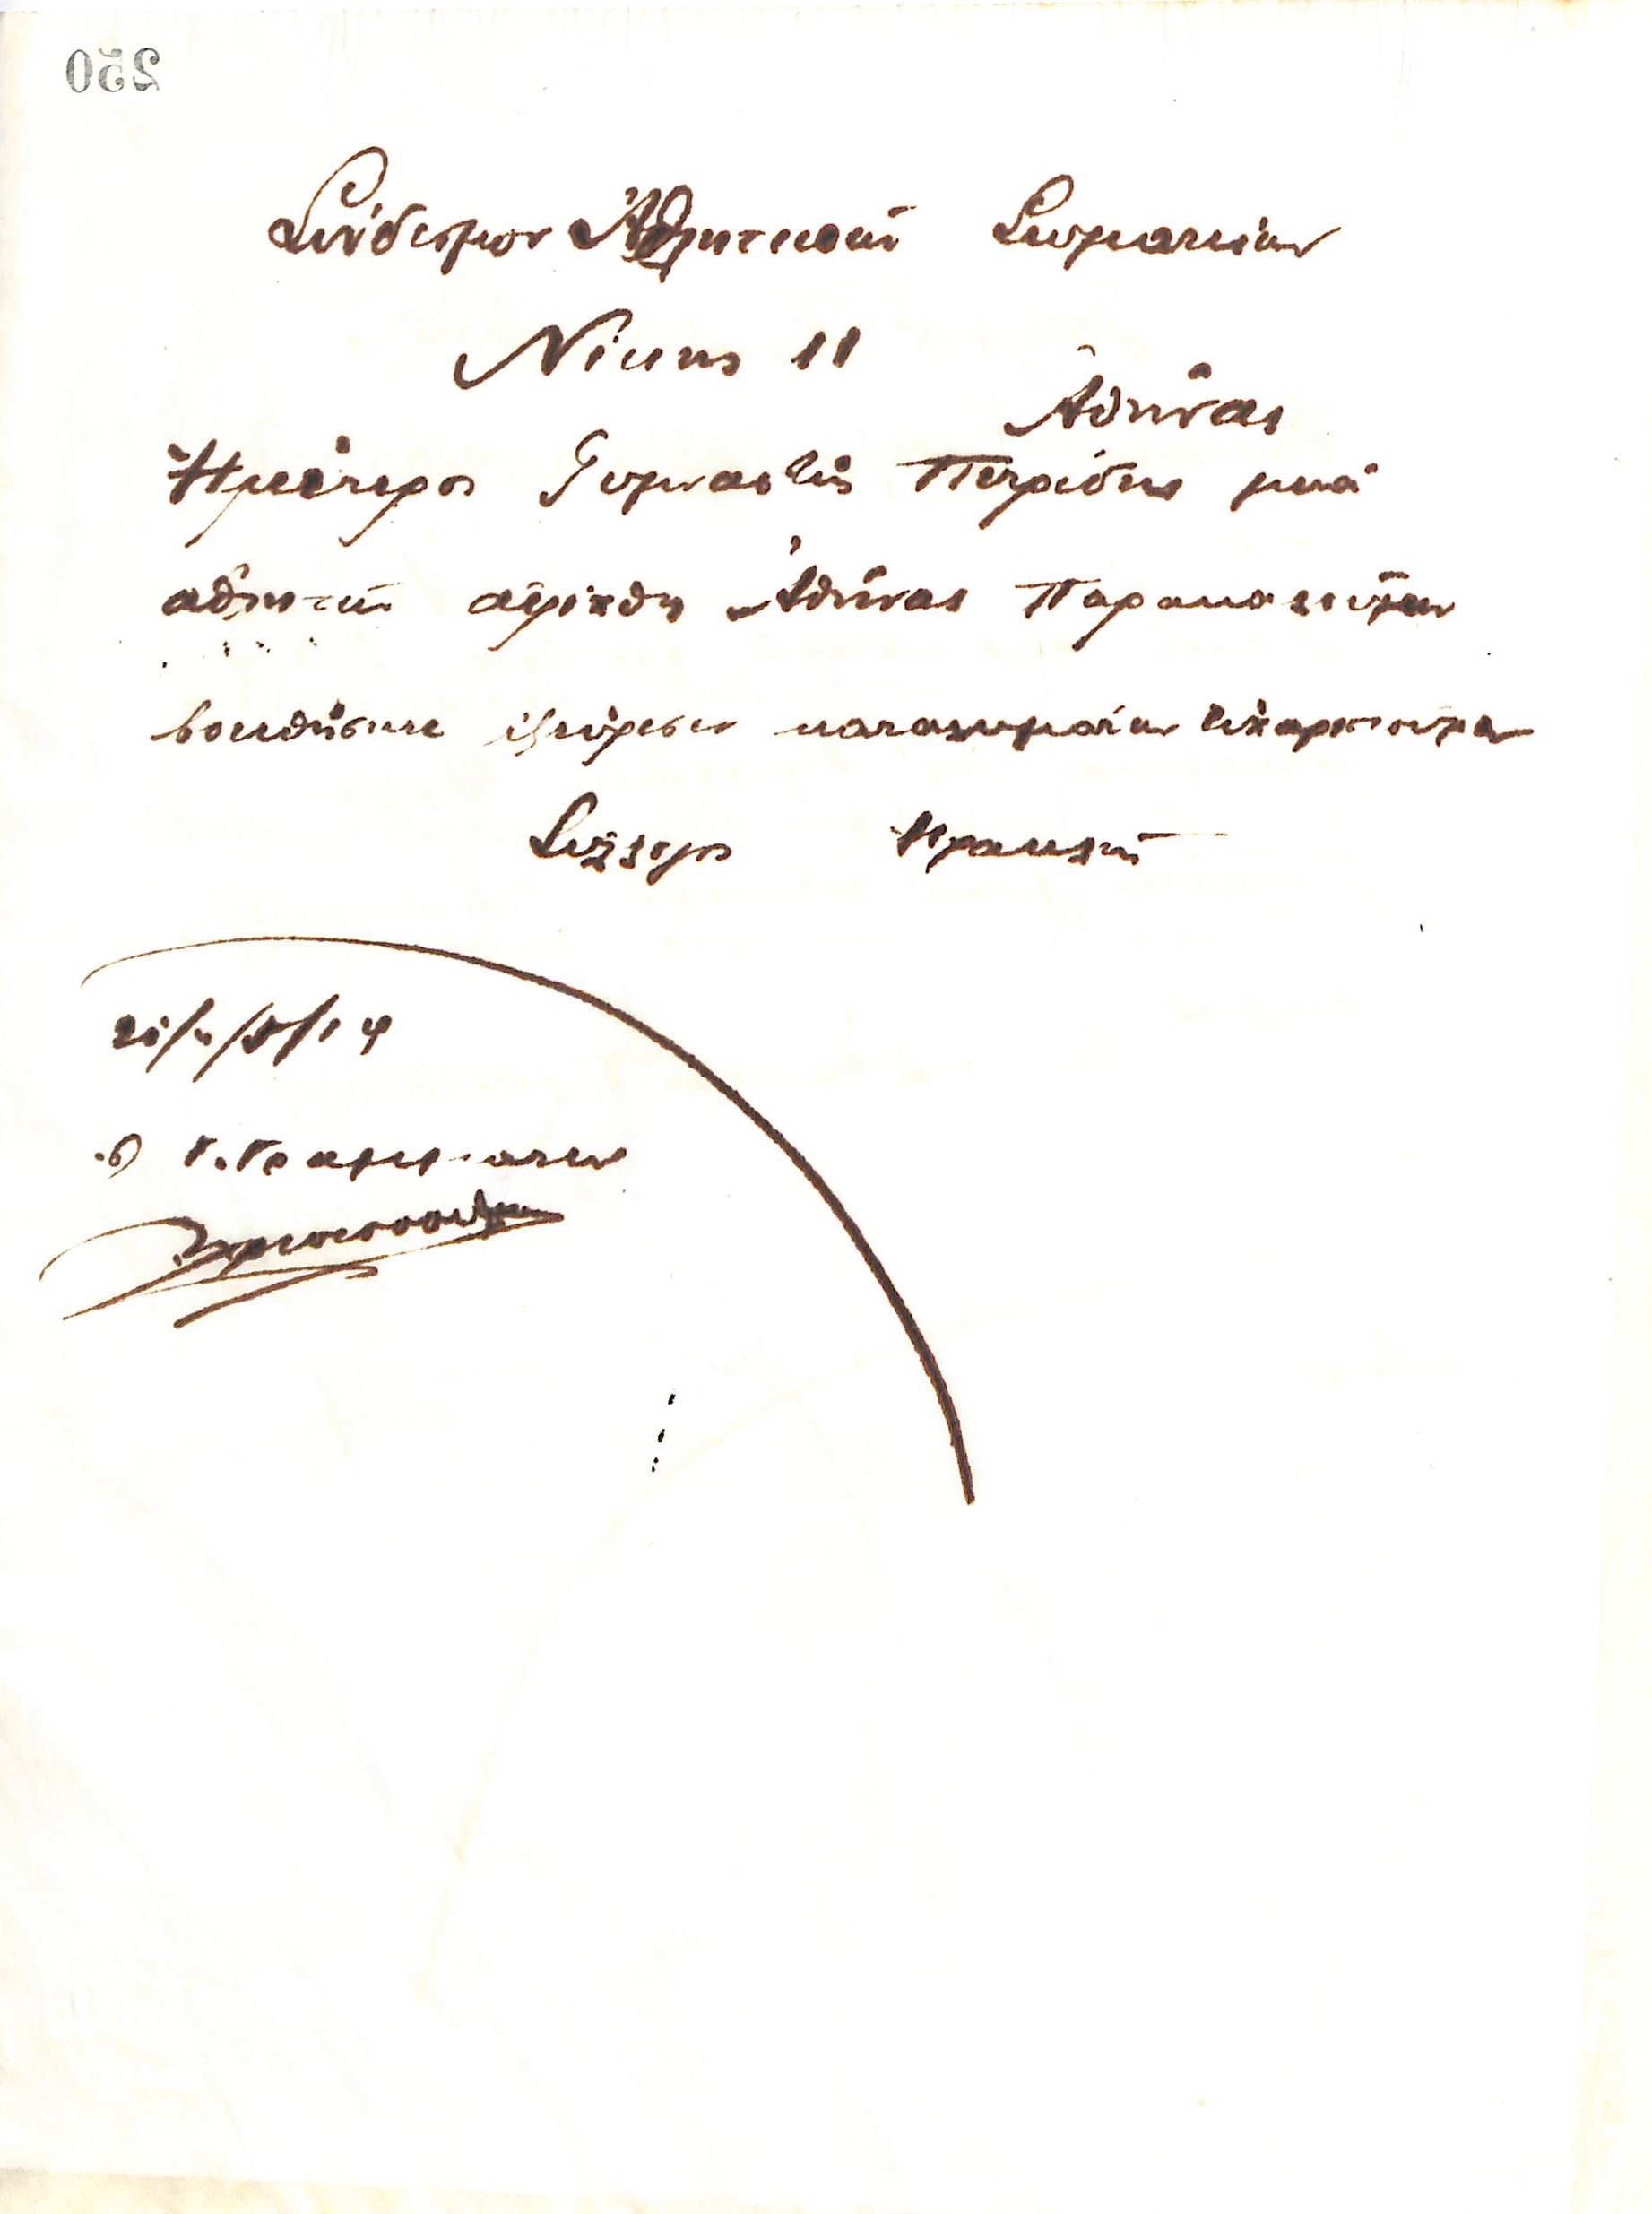 250
Σύνδεσμον Ἀθλητικῶν Σωματείων
Νίκης 11
Ἀθήνας
Ἡμέτερος Γυμναστὴς Πετρίδης μετὰ
αθλητῶν αφίχθη Ἀθήνας Παρακαλοῦμεν
βοηθήσητε ἐξεύρεσιν καταλυμάτων Εὐχαριστοῦμεν
Σύλλογος Ηρακλῆς
ὁ Γ. Γραμματεὺς